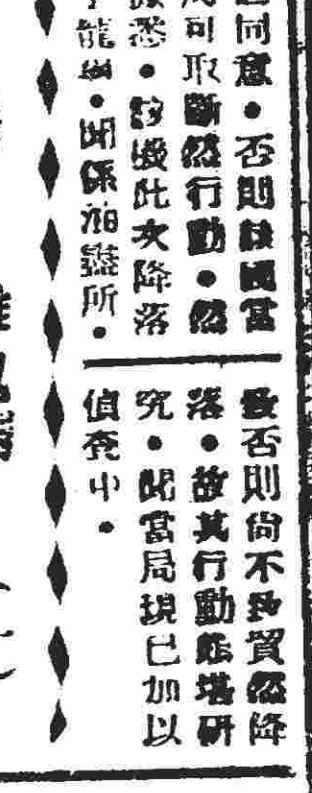 同意•否則該國當
可取斷然行動•然
悉•該機此次降落
•聞係油盡所•
否則尚不致貿然降
落•故其行動殊堪研
究•聞當局現已加以
偵查中•